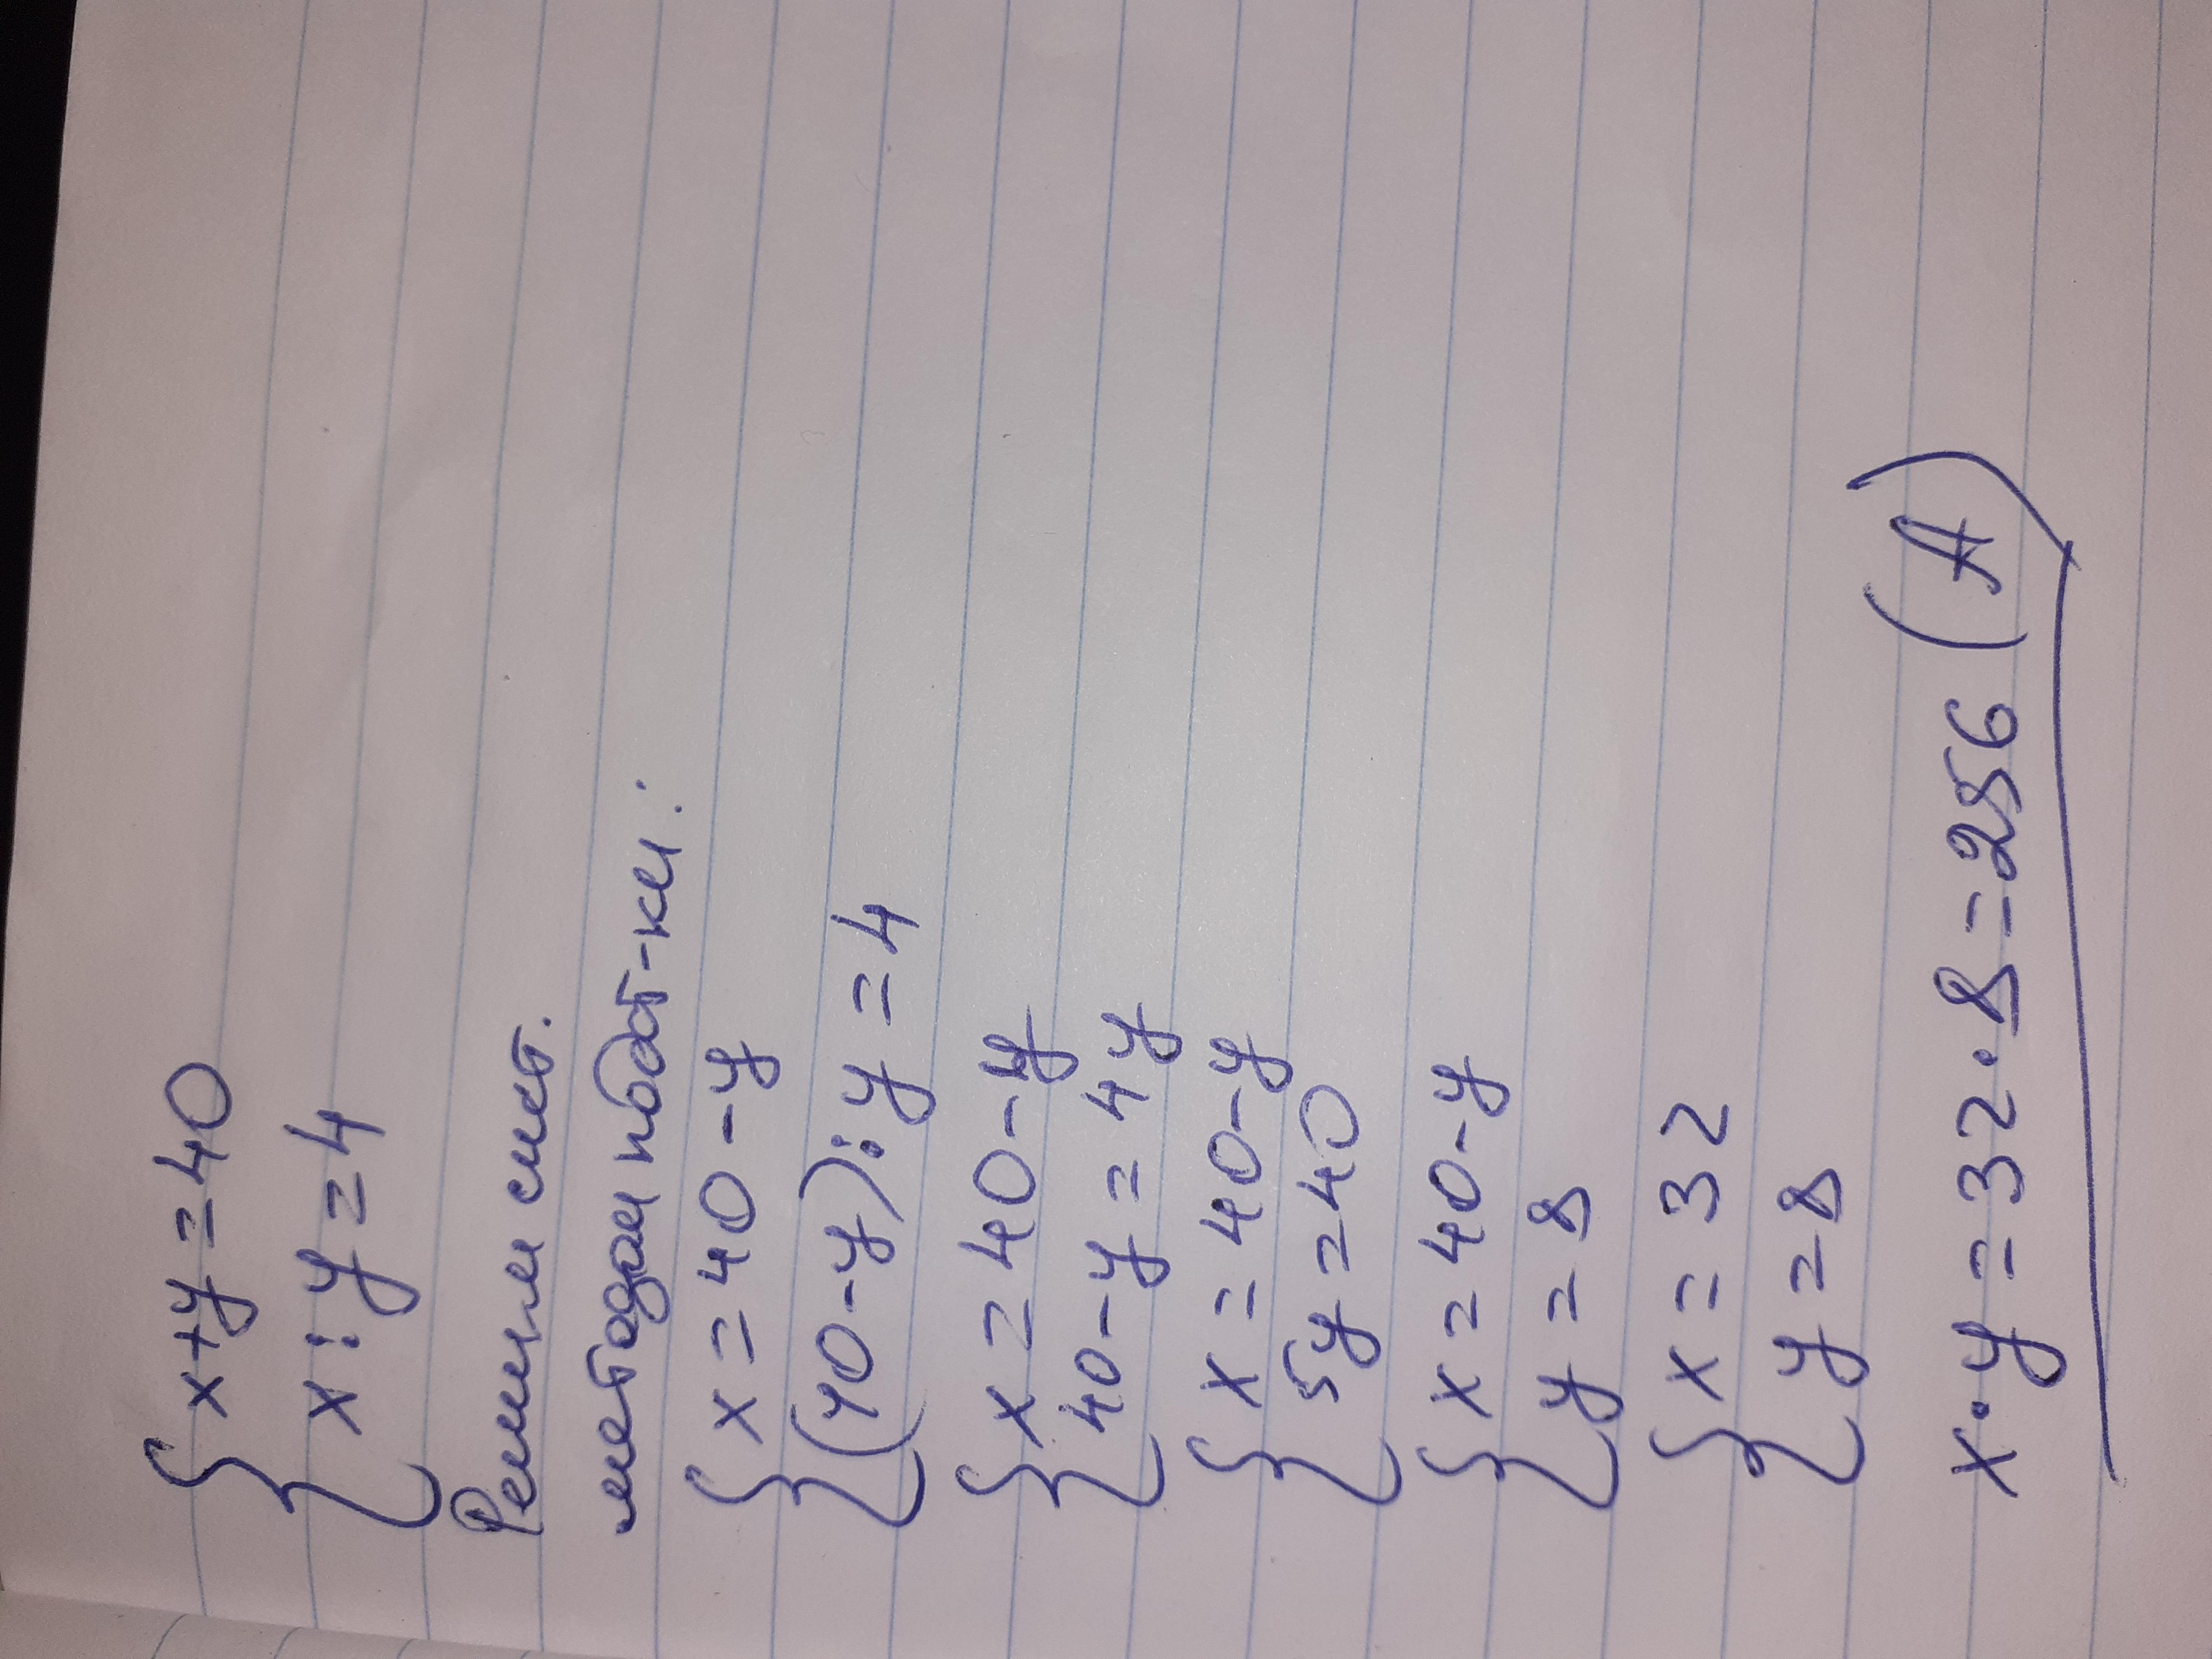 x+y=40
x:y=4
Решим сист.
методом подст-ки:
x=40-y
(40-y):y=4
x=40-y
40-y=4y
x=40-y
5y=40
x=40-y
y=8
x=32
y=8
x·y=32·8=256 (А)